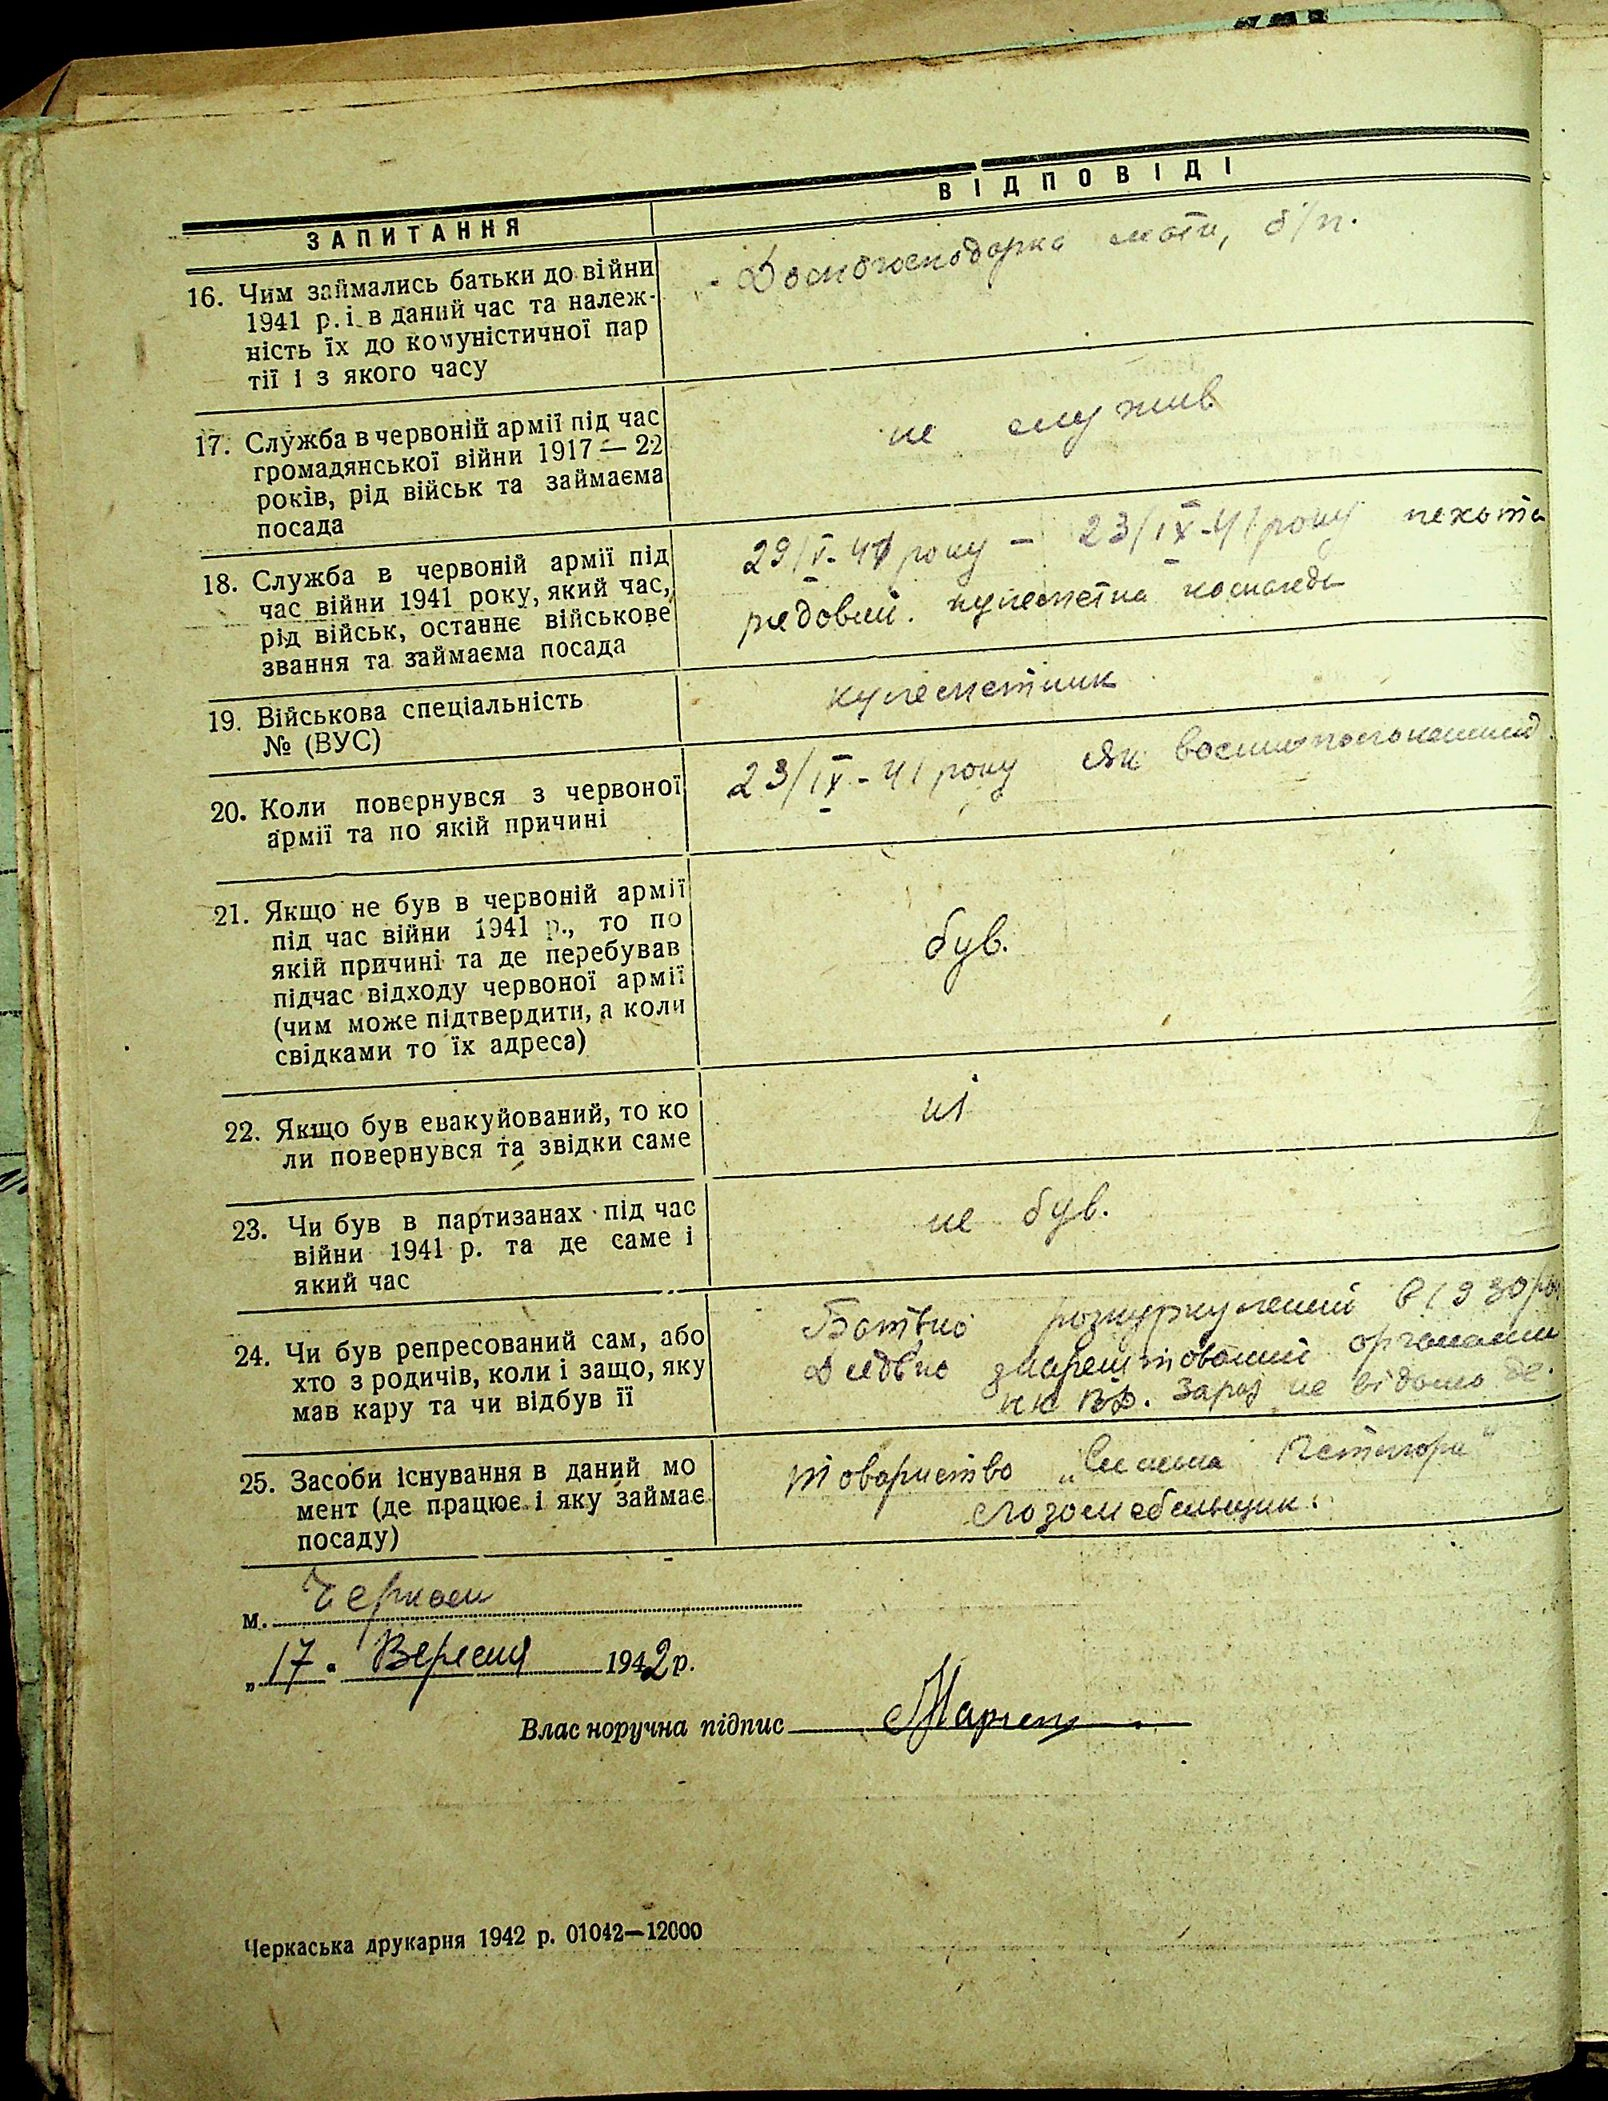 ЗАПИТАННЯ
ВІДПОВІДІ
16. Чим займались батьки до війни
1941 р. і в даний час та належ-
ність їх до комуністичної пар
тії і з якого часу
Домогосподарка мати, б/п.
17. Служба в червоній армії під час
громадянської війни 1917—22
років, рід військ та займаєма
посада
не служив
18. Служба в червоній армії під
час війни 1941 року, який час,
рід військ, останнє військове
звання та займаєма посада
29/V-41 року — 23/IX-41 року пехота
рядовий. кулеметна команда
19. Військова спеціальність
№ (ВУС)
кулеметник
20. Коли повернувся з червоної
армії та по якій причині
23/IX-41 року як
21. Якщо не був в червоній армії
під час війни 1941 р., то по
якій причині та де перебував
підчас відходу червоної армії
(чим може підтвердити, а коли
свідками то їх адреса)
був.
22. Якщо був евакуйований, то ко
ли повернувся та звідки саме
ні
23. Чи був в партизанах під час
війни 1941 р. та де саме і
який час
не був.
24. Чи був репресований сам, або
хто з родичів, коли і защо, яку
мав кару та чи відбув її
Батько розкуркулений в 1930 ро
Дядько заарештований органами
НКВД. Зараз не відомо де.
25. Засоби існування в даний мо
мент (де працює і яку займає
посаду)
товариство
лозомебельщик.
м. Черкаси
„17“ Вересня 1942 р.
Власноручна підпис
Черкаська друкарня 1942 р. 01042—12000